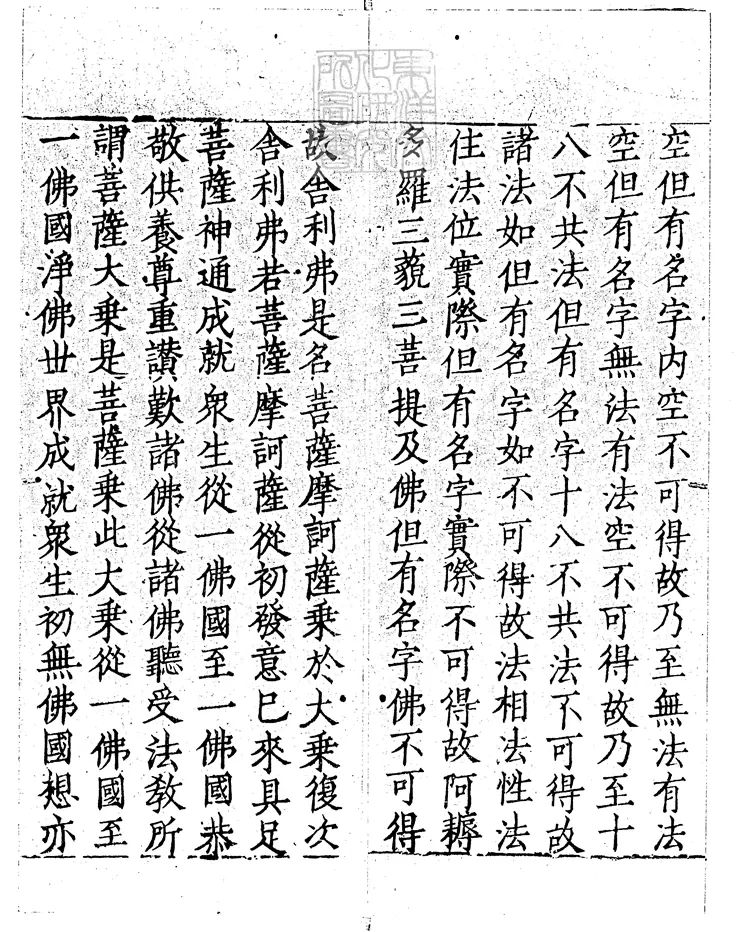 空但有名字内空不可得故乃至無法有法
空但有名字無法有法空不可得故乃至十
八不共法但有名字十八不共法不可得故
諸法如但有名字如不可得故法相法性法
住法位實際但有名字實際不可得故阿耨
多羅三藐三菩提及佛但有名字佛不可得
故舍利弗是名菩薩摩訶薩乘於大乘復次
舍利弗若菩薩摩訶薩從初發意已來具足
菩薩神通成就衆生從一佛國至一佛國恭
敬供養尊重讃歎諸佛從諸佛聽受法教所
謂菩薩大乘是菩薩乘此大乘從一佛國至
一佛國淨佛世界成就衆生初無佛國想亦